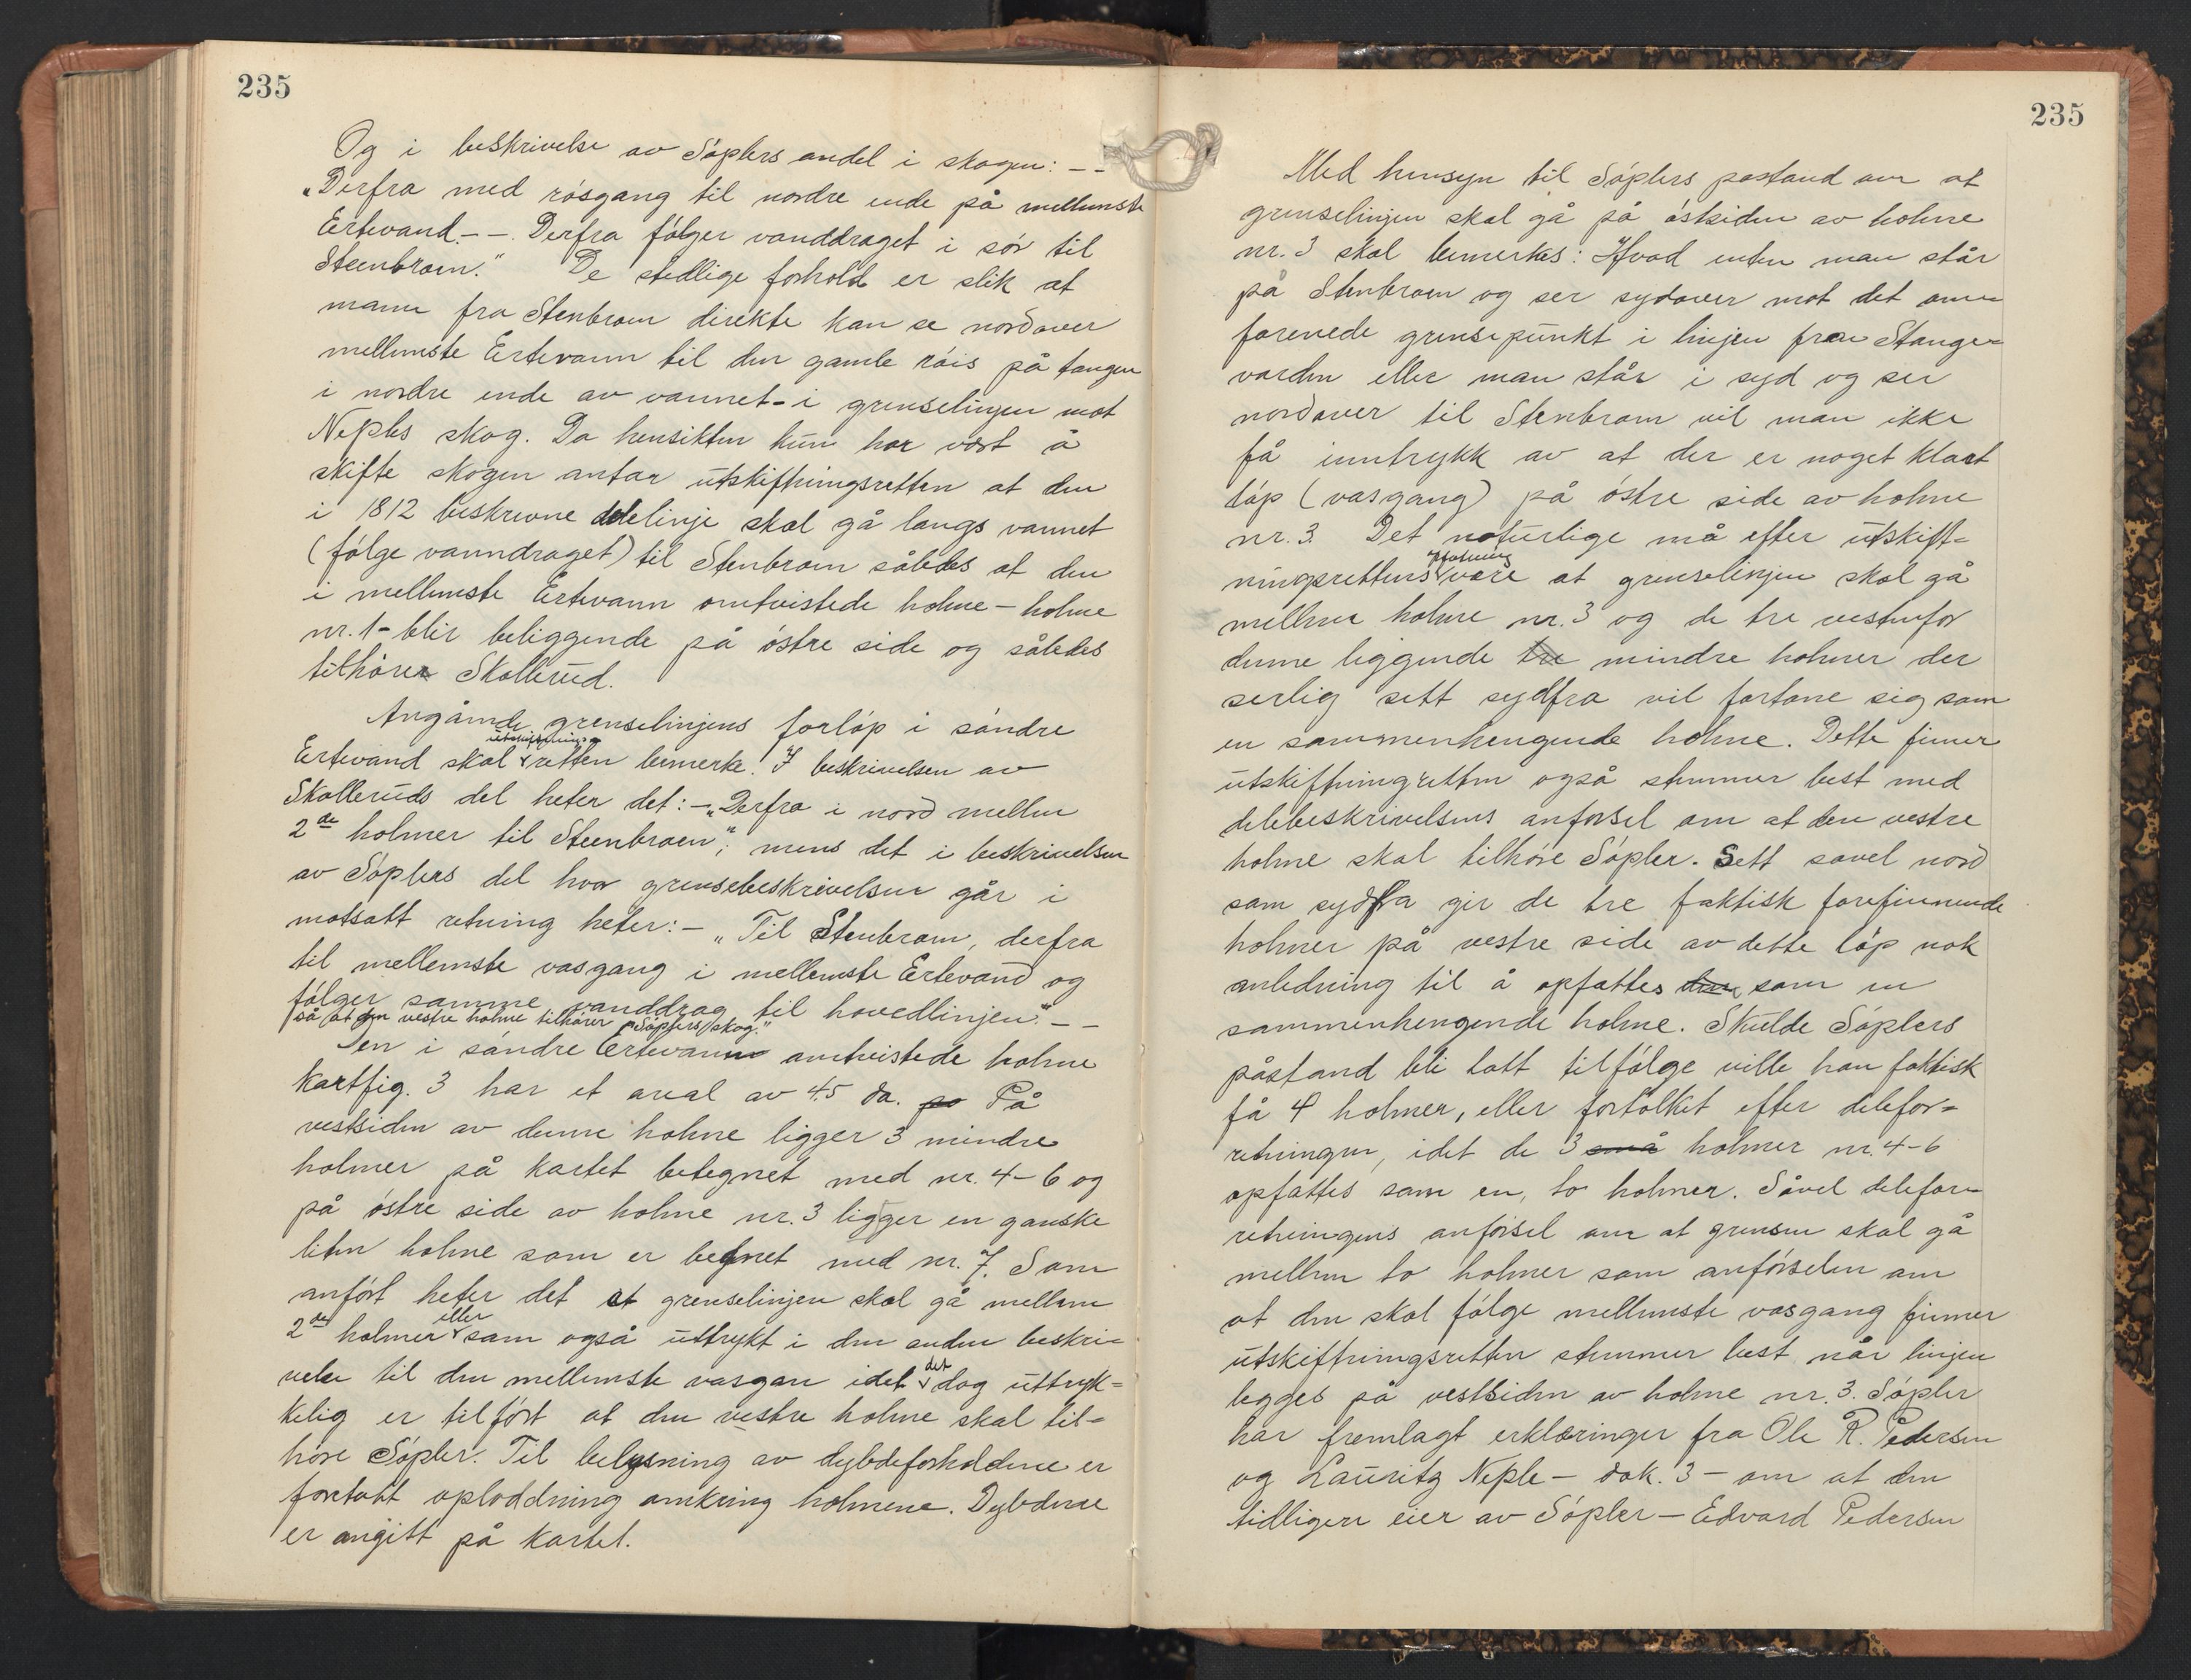 235
Og i beskrivelse av Söplers andel i skogen: --
„Derfra med rösgang til nordre ende på mellemste
Ertevand -- . Derfra fölger vanddraget i sör til
Steenbroen." De stedlige forhold er slik at
mann fra Stenbroen direkte kan se nordover
mellemste Ertevann til den gamle röis på tangen
i nordre ende av vannet - i grenselinjen mot
Neples skog. Da hensikten kun har vært å
skifte skogen antar utskiftningsretten at den
i 1812 beskrevne delelinje skal gå langs vannet
(fölge vanndraget) til Stenbroen således at den
i mellemste Ertevann omtvistede holme - holme
nr. 1 - blir beliggende på östre side og således
tilhörer Skollerud.
Angående grenselinjens forlöp i söndre
Ertevand skal utskiftnings-retten bemerke: I beskrivelsen av
Skolleruds del heter det: - „Derfra i nord mellem
2de holmer til Steenbroen"; mens det i beskrivelsen
av Söplers del hvor grensebeskrivelsen går i
motsatt retning heter: - „Til Stenbroen, derfra
til mellemste vasgang i mellemste Ertevand og
fölger samme vanddrag til hovedlinjen" --
så at den vestre holme tilhörer "Söplers skog."
Den i söndre Ertevann omtvistede holme
kartfig. 3 har et areal av 4.5 da. på På
vestsiden av denne holme ligger 3 mindre
holmer på kartet betegnet med nr. 4-6 og
på östre side av holme nr. 3 ligger en ganske
liten holme som er betgnet med nr. 7. Som
anfört heter det at grenselinjen skal gå mellem
2de holmer eller som også uttrykt i den anden beskri-
velse til den mellemste vasgan idet det dog uttryk=
kelig er tilfört at den vestre holme skal til=
höre Söpler. Til belysning av dybdeforholdene er
foretatt oploddning omkring holmene. Dybdene
er angitt på kartet.
235
Med hensyn til Söplers påstand om at
grenselinjen skal gå på östsiden av holme
nr. 3 skal bemerkes: Hvad enten man står
på Stenbroen og ser sydover mot det om-
forenede grensepunkt i linjen fra Stange-
varden eller man står i syd og ser
nordover til Stenbroen vil man ikke
få inntrykk av at der er noget klart
löp (vasgang) på östre side av holme
nr. 3. Det naturlige må efter utskift=
ningsrettens opfatning være at grenselinjen skal gå
mellem holme nr. 3 og de tre vestenfor
denne liggende tre mindre holmer der
serlig sett sydfra vil fortone sig som
en sammenhengende holme. Dette finner
utskiftningretten også stemmer best med
delebeskrivelsens anförsel om at den vestre
holme skal tilhöre Söpler. Sett såvel nord
som sydfra gir de tre faktisk forefinnende
holmer på vestre side av dette löp nok
anledning til å opfattes som en
sammenhengende holme. Skulde Söplers
påstand bli tatt tilfölge ville han faktisk
få 4 holmer, eller fortolket efter delefor=
retningen, idet de 3 små holmer nr. 4-6
opfattes som en, to holmer. Såvel delefor-
retningens anförsel om at grensen skal gå
mellem to holmer som anförselen om
at den skal fölge mellemste vasgang finner
utskiftningsretten stemmer best når linjen
legges på vestsiden av holme nr. 3. Söpler
har fremlagt erklæringer fra Ole R. Pedersen
og Lauritz Neple - dok. 3 - om at den
tidligere eier av Söpler - Edvard Pedersen